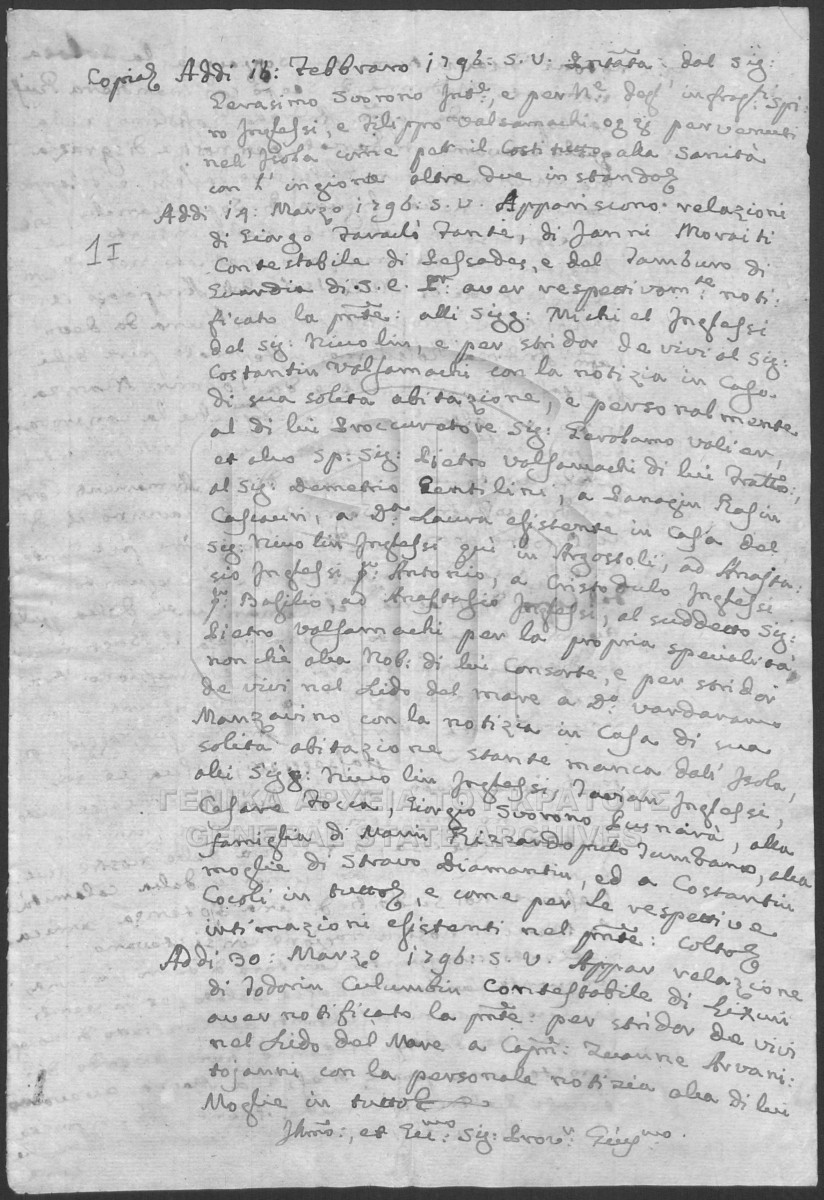 Copia Addi 16: Febbraro 1796: S.V. Pntāta dal Sig:
Gerasimo Svorono Intē, e per N.e degl' infrapti Spi:
ro Inglessi, e Filippo Valsamachi pervenuti
nell' Isola come pel il Costituto alla Sanità
con l' ingionte altre due instando
Addi 14: Marzo 1796: S.V. Appariscono relazioni
1I
di Giorgo Fante, di Janni Moraiti
Contestabile di e dal Tamburo di
Guardia di S.E. Pr: aver respettivam.te noti:
ficato la pnte: alli Sigg: Michiel Inglessi
del Sig: Nicolin, e per stridor de vivi al Sig:
Costantin Valsamachi con la notizia in Casa
di sua solita abitazione, e personalmente
al di lui Proccuratore Sig: Gerolamo Valier,
et alio Sp: Sig: Pietro Valsamachi di lui Fratto:,
al Sig: Demetrio Gentilini, a Panagin Rasin
a D.a Laura esistente in Casa del
Sig: Nicolin Inglessi quì in Argostoli, ad Anasta:
sio Inglessi q: Antonio, a Cristodulo Inglessi
q: Basilio, ad Anastasio Inglessi, al suddetto Sig:
Pietro Valsamachi per la propria specialità
nonchè alla Nob: di lui Consorte, e per stridor
de vivi nel Lido del mare a D.o Vardaramo
Manzavino con la notizia in Casa di sua
solita abitazione stante manca dall' Isola,
alli Sigg: Nicolin Inglessi, Inglessi,
Cesare Tocca, Giorgio Svorono alla
famiglia di Marin Rizzardopulo alla
moglie di Stavro Diamantin, ed a Costantin
Cocoli in tutto, e come per le respettive
intimazioni esistenti nel pnte: Colto
Addi 30: Marzo 1796: S.V. Appar relazione
di Todorin Columbin Contestabile di Lixuri
aver notificato la pnte: per stridor de vivi
nel Lido del Mare a Capn: Zuanne Arvani:
tojanni con la personale notizia alla di lui
Moglie in tutto
Illmo:, et Eccmo: Sig: Prov.r
ΓΕΝΙΚΑ ΑΡΧΕΙΑ ΤΟΥ ΚΡΑΤΟΥΣ
GENERAL STATE ARCHIVES